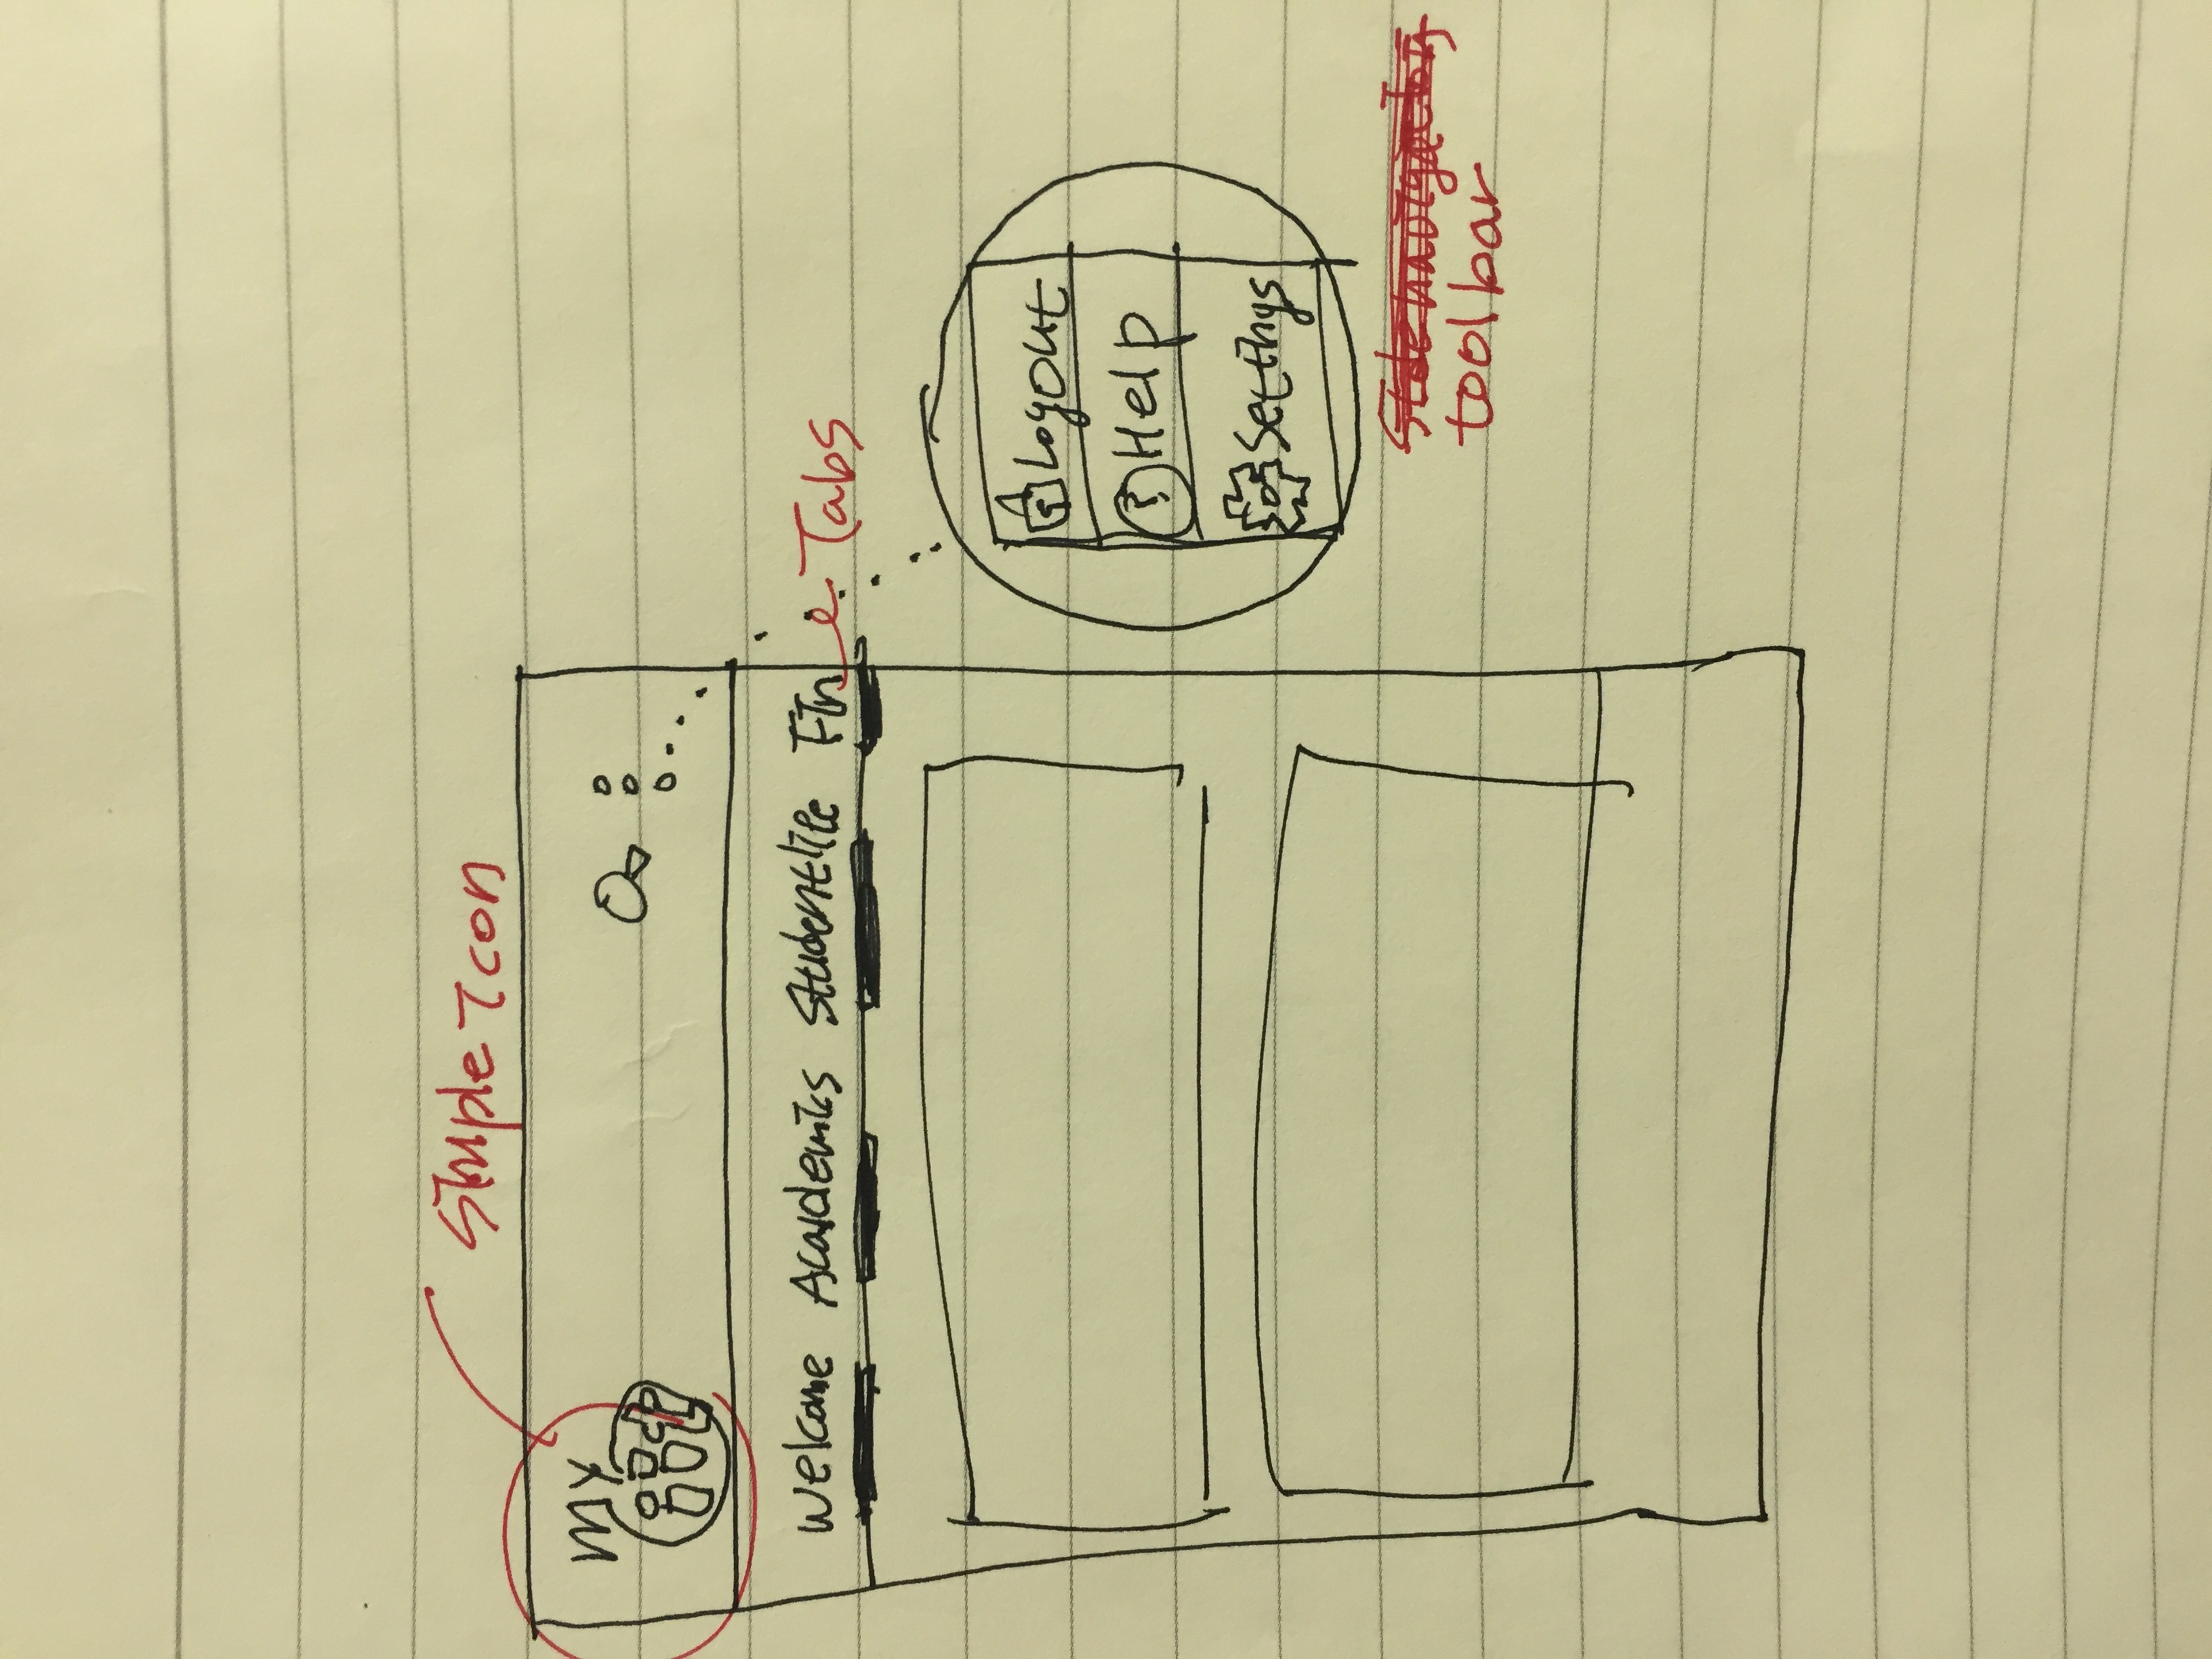 Simple Icon
My
Welcome Academics Studentlife Fin
Tabs
Logout
? Help
Settings
Side navigation
toolbar